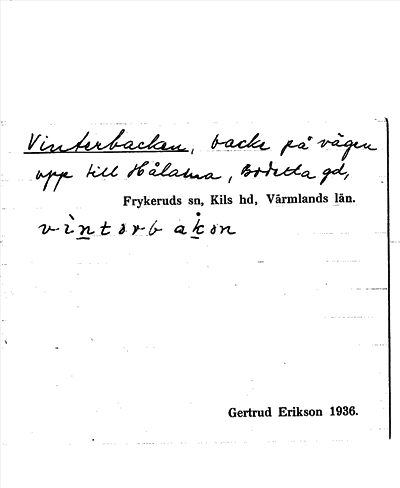 Vinterbacken, backe på vägen
upp till Hålatna, Bodetta gd,
Frykeruds sn, Kils hd, Värmlands län.
vìntərbakən
Gertrud Erikson 1936.